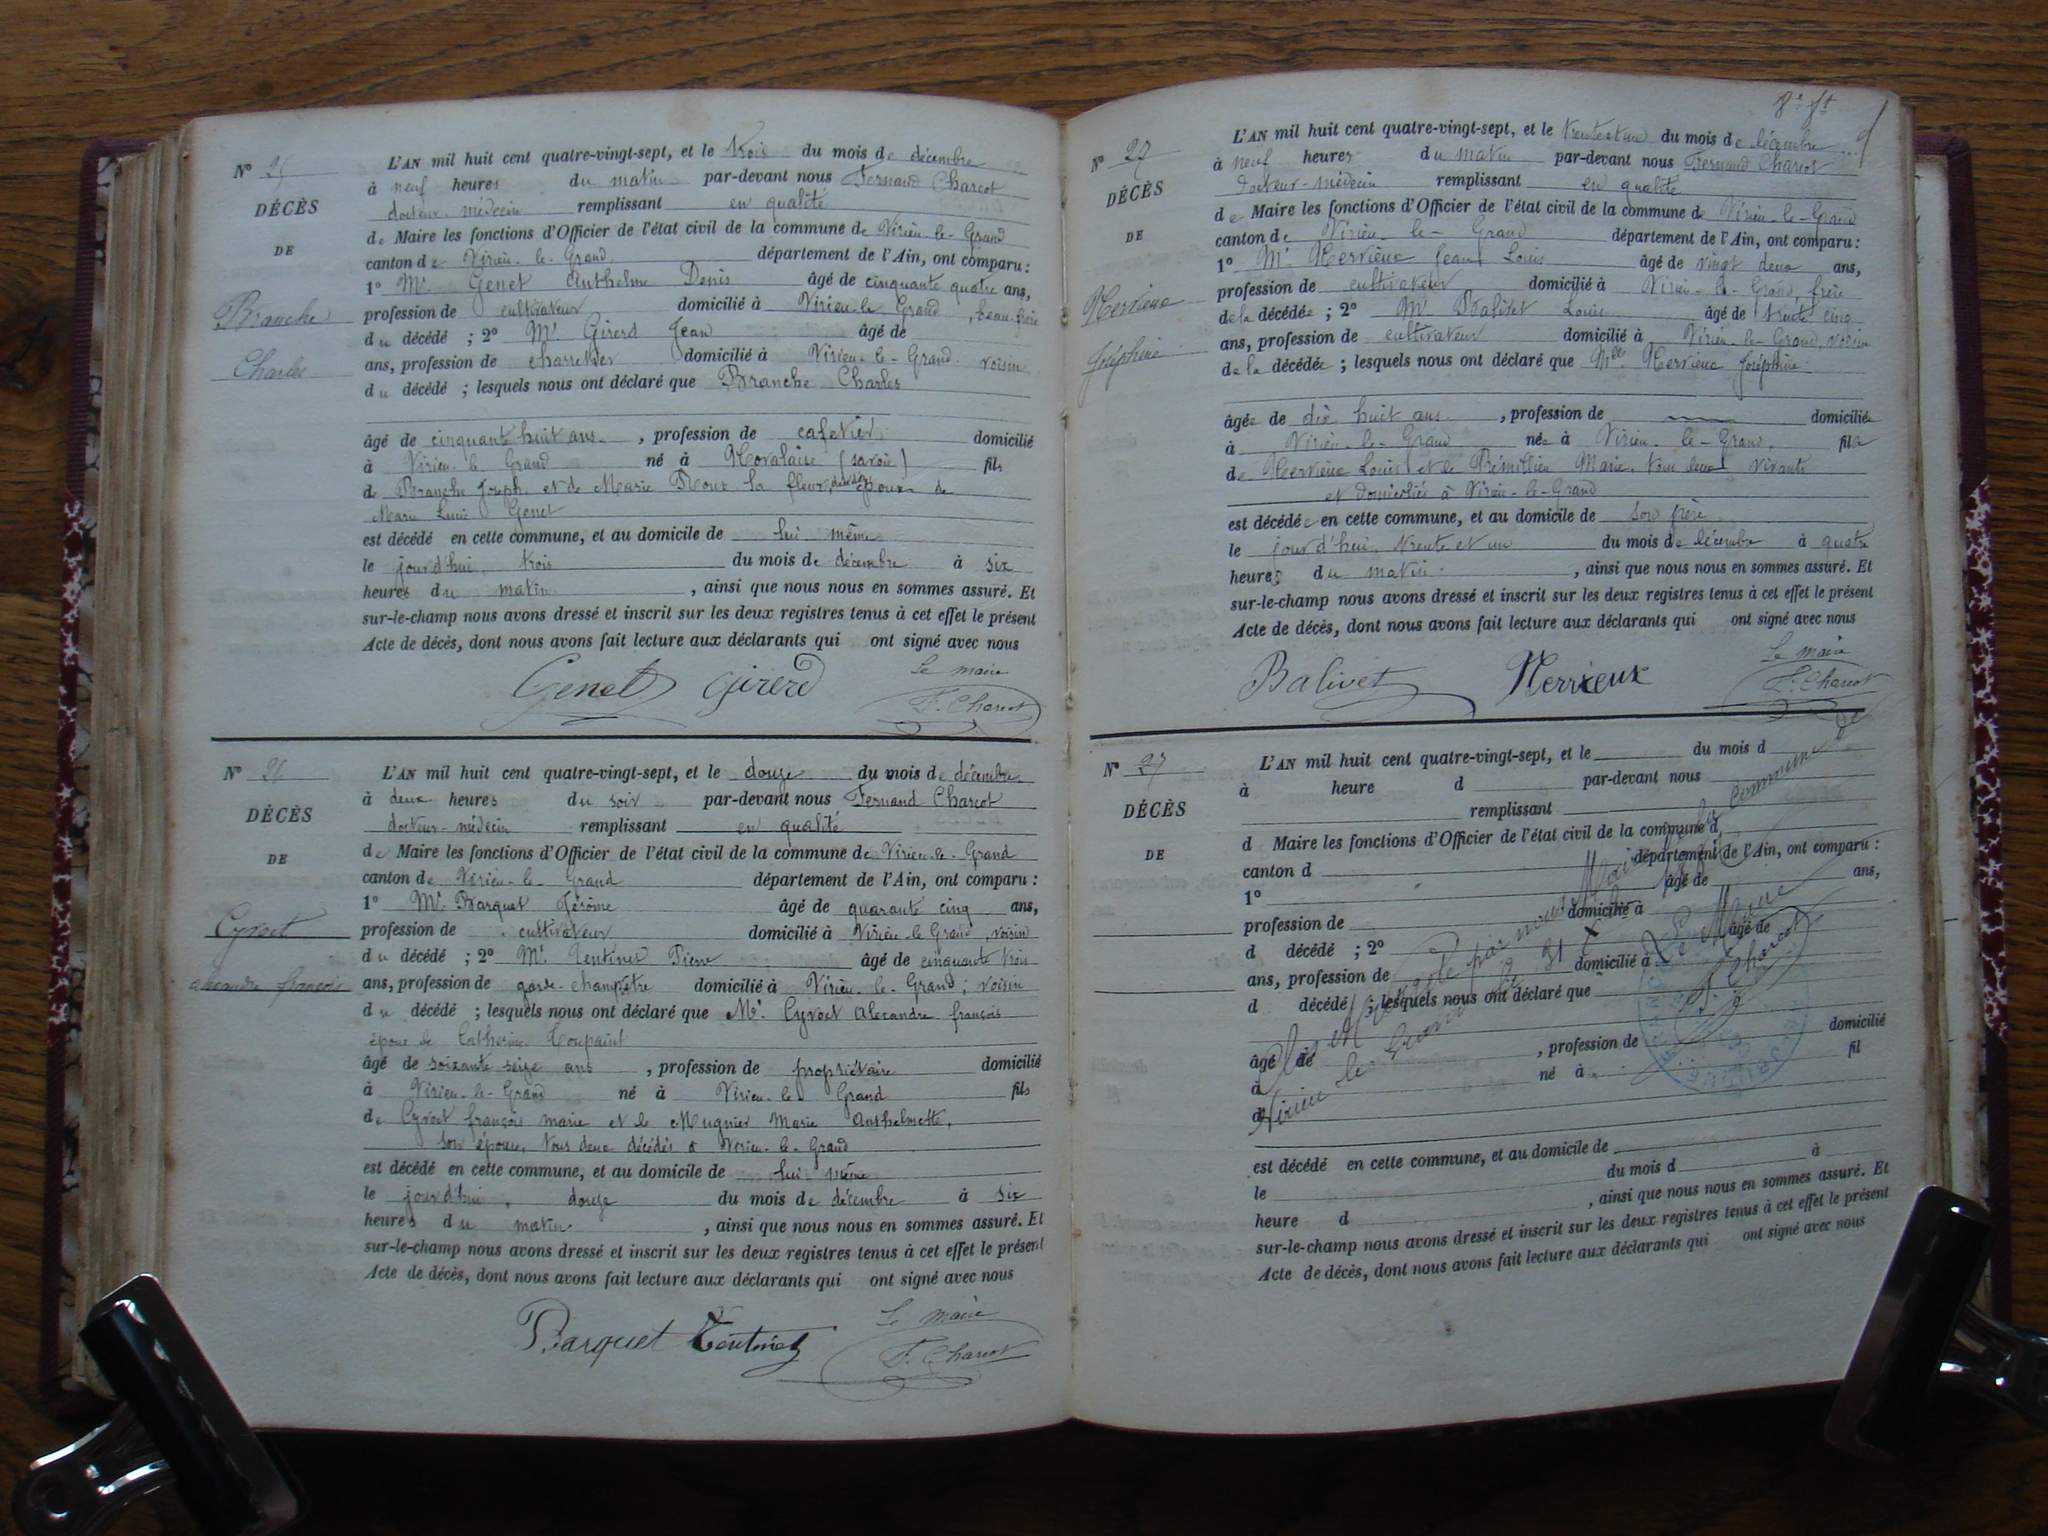 N° 25
DÉCÈS
DE
Branche
Charles
L'AN mil huit cent quatre-vingt-sept, et le trois du mois de décembre
à neuf heures du matin par-devant nous Fernand Charcot
docteur-médecin remplissant en qualité
de Maire les fonctions d'Officier de l'état civil de la commune de Virieu-le-Grand
canton de Virieu-le-Grand département de l'Ain, ont comparu :
1° Mr Genet Anthelme Denis âgé de cinquante quatre ans,
profession de cultivateur domicilié à Virieu-le Grand, beau-frère
du décédé ; 2° Mr Girerd Jean âgé de
ans, profession de charretier domicilié à Virieu-le-Grand voisin
du décédé ; lesquels nous ont déclaré que Branche Charles
âgé de cinquante huit ans , profession de cafetier domicilié
à Virieu-le Grand né à Novalaise (savoie) fils
de Branche Joseph et de Marie la fleur, époux de
Marie Lucie Genet
est décédé en cette commune, et au domicile de lui même
le jourd'hui trois du mois de décembre à six
heures du matin , ainsi que nous nous en sommes assuré. Et
sur-le-champ nous avons dressé et inscrit sur les deux registres tenus à cet effet le présent
Acte de décès, dont nous avons fait lecture aux déclarants qui ont signé avec nous
Genet Girerd Le maire
F. Charcot
N° 26
DÉCÈS
DE
Cyvoct
alexandre françois
L'AN mil huit cent quatre-vingt-sept, et le douze du mois de décembre
à deux heures du soir par-devant nous Fernand Charcot
docteur-médecin remplissant en qualité
de Maire les fonctions d'Officier de l'état civil de la commune de Virieu-le-Grand
canton de Virieu-le-Grand département de l'Ain, ont comparu :
1° Mr Barquet Jérôme âgé de quarante cinq ans,
profession de cultivateur domicilié à Virieu-le Grand, voisin
du décédé ; 2° Mr Tentinet Pierre âgé de cinquante trois
ans, profession de garde-champêtre domicilié à Virieu-le-Grand, voisin
du décédé ; lesquels nous ont déclaré que Mr Cyvoct alexandre françois
époux de Catherine
âgé de soixante seize ans , profession de propriétaire domicilié
à Virieu-le-Grand né à Virieu-le Grand fils
de Cyvoct françois marie et de Mugnier Marie Anthelmette,
son épouse, tous deux décédés à Virieu-le-Grand
est décédé en cette commune, et au domicile de lui-même
le jourd'hui, douze du mois de décembre à six
heures du matin , ainsi que nous nous en sommes assuré. Et
sur-le-champ nous avons dressé et inscrit sur les deux registres tenus à cet effet le présent
Acte de décès, dont nous avons fait lecture aux déclarants qui ont signé avec nous
Barquet Tentinet Le maire
F. Charcot
N° 27
DÉCÈS
DE
Hervieux
Joséphine
L'AN mil huit cent quatre-vingt-sept, et le trente et un du mois de décembre
à neuf heures du matin par-devant nous Fernand Charcot
docteur-médecin remplissant en qualité
de Maire les fonctions d'Officier de l'état civil de la commune de Virieu-le-Grand
canton de Virieu-le-Grand département de l'Ain, ont comparu :
1° Mr Hervieux Jean Louis âgé de vingt deux ans,
profession de cultivateur domicilié à Virieu-le-Grand, frère
de la décédée ; 2° Mr Balivet Louis âgé de trente cinq
ans, profession de cultivateur domicilié à Virieu-le-Grand, voisin
de la décédée ; lesquels nous ont déclaré que Mlle Hervieux Joséphine
âgée de dix huit ans , profession de domiciliée
à Virieu-le-Grand née à Virieu-le-Grand, fille
de Hervieux Louis et de Prémillieu Marie, tous deux vivants
et domiciliés à Virieu-le-Grand
est décédée en cette commune, et au domicile de son frère
le jourd'hui, trente et un du mois de décembre à quatre
heures du matin , ainsi que nous nous en sommes assuré. Et
sur-le-champ nous avons dressé et inscrit sur les deux registres tenus à cet effet le présent
Acte de décès, dont nous avons fait lecture aux déclarants qui ont signé avec nous
Balivet Hervieux Le maire
F. Charcot
N° 27
DÉCÈS
DE
L'AN mil huit cent quatre-vingt-sept, et le du mois d
à heure d par-devant nous
remplissant
d Maire les fonctions d'Officier de l'état civil de la commune d
canton d département de l'Ain, ont comparu :
1° âgé de ans,
profession de domicilié à
d décédé ; 2° âgé de
ans, profession de domicilié à
d décédé ; lesquels nous ont déclaré que
âgé de , profession de domicilié
à né à fil
d
est décédé en cette commune, et au domicile de
le du mois d à
heure d , ainsi que nous nous en sommes assuré. Et
sur-le-champ nous avons dressé et inscrit sur les deux registres tenus à cet effet le présent
Acte de décès, dont nous avons fait lecture aux déclarants qui ont signé avec nous
Clos et par nous Maire de la commune de
Virieu le Grand le 31
Le Maire
F. Charcot